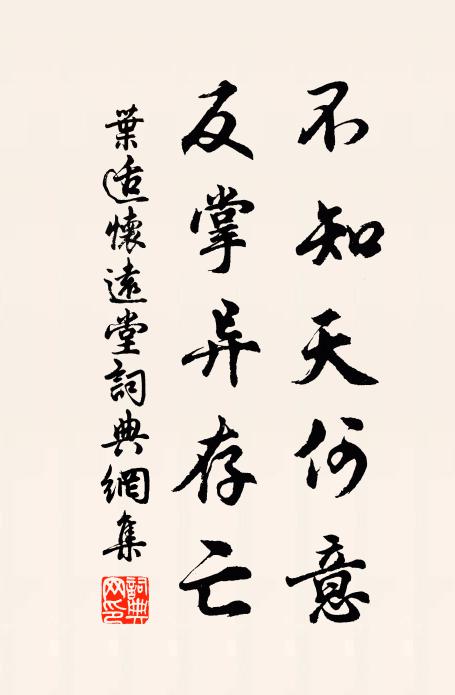 不知天何意
反掌异存亡
葉适懷遠堂詞典網集
詞典網印